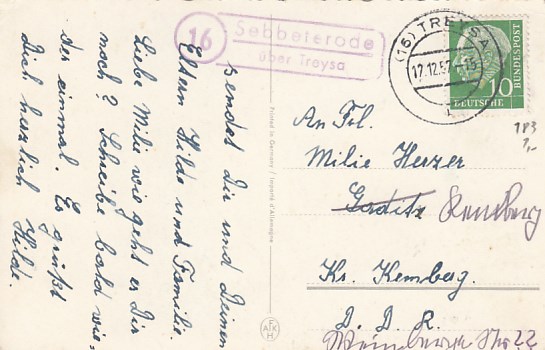 16 Sebbeterode
über Treysa
(16) TREYSA
17.12.57.-15
DEUTSCHE BUNDESPOST
10
183
7,-
sendet Dir und Deinen
Eltern Hilde und Familie.
Liebe Milie wie geht es Dir
noch? Schreibe bald wie=
der einmal. Es grüßt
Dich herzlich Hilde.
Printed in Germany / Imparté d'Allemagne
An Frl.
Milie Herzer
Gaditz Kemberg
Kr. Kemberg.
D. D. R.
Weinberge Str 22